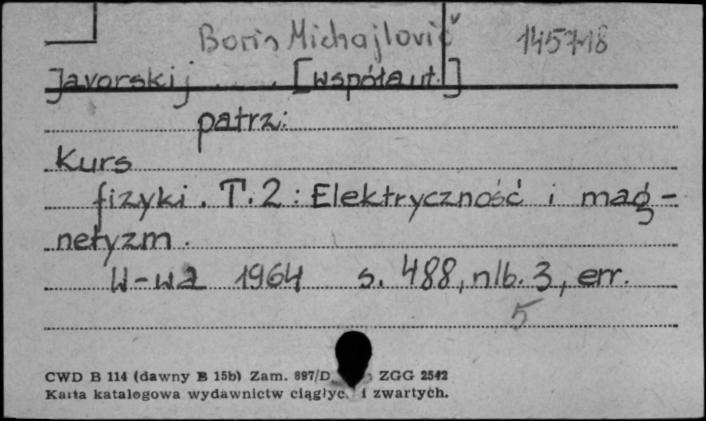 Boris Michajlovič 145718
Javorskij ..... [współaut.]
patrz:
Kurs
fizyki. T.2: Elektryczność i mag-
netyzm.
W-wa 1964 s. 488, nlb. 3, err.
5
CWD B 114 (dawny B 15b) Zam. 897/D ZGG 2542
Karta katalogowa wydawnictw ciągłyc i zwartych.